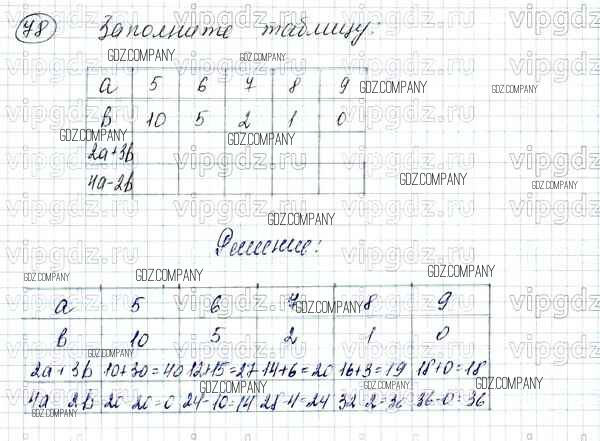 78 Заполните таблицу:
a 5 6 7 8 9
b 10 5 2 1 0
2a+3b
4a-2b
Решение:
a 5 6 7 8 9
b 10 5 2 1 0
2a+3b 10+30=40 12+15=27 14+6=20 16+3=19 18+0=18
4a-2b 20-20=0 24-10=14 28-4=24 32-2=30 36-0=36